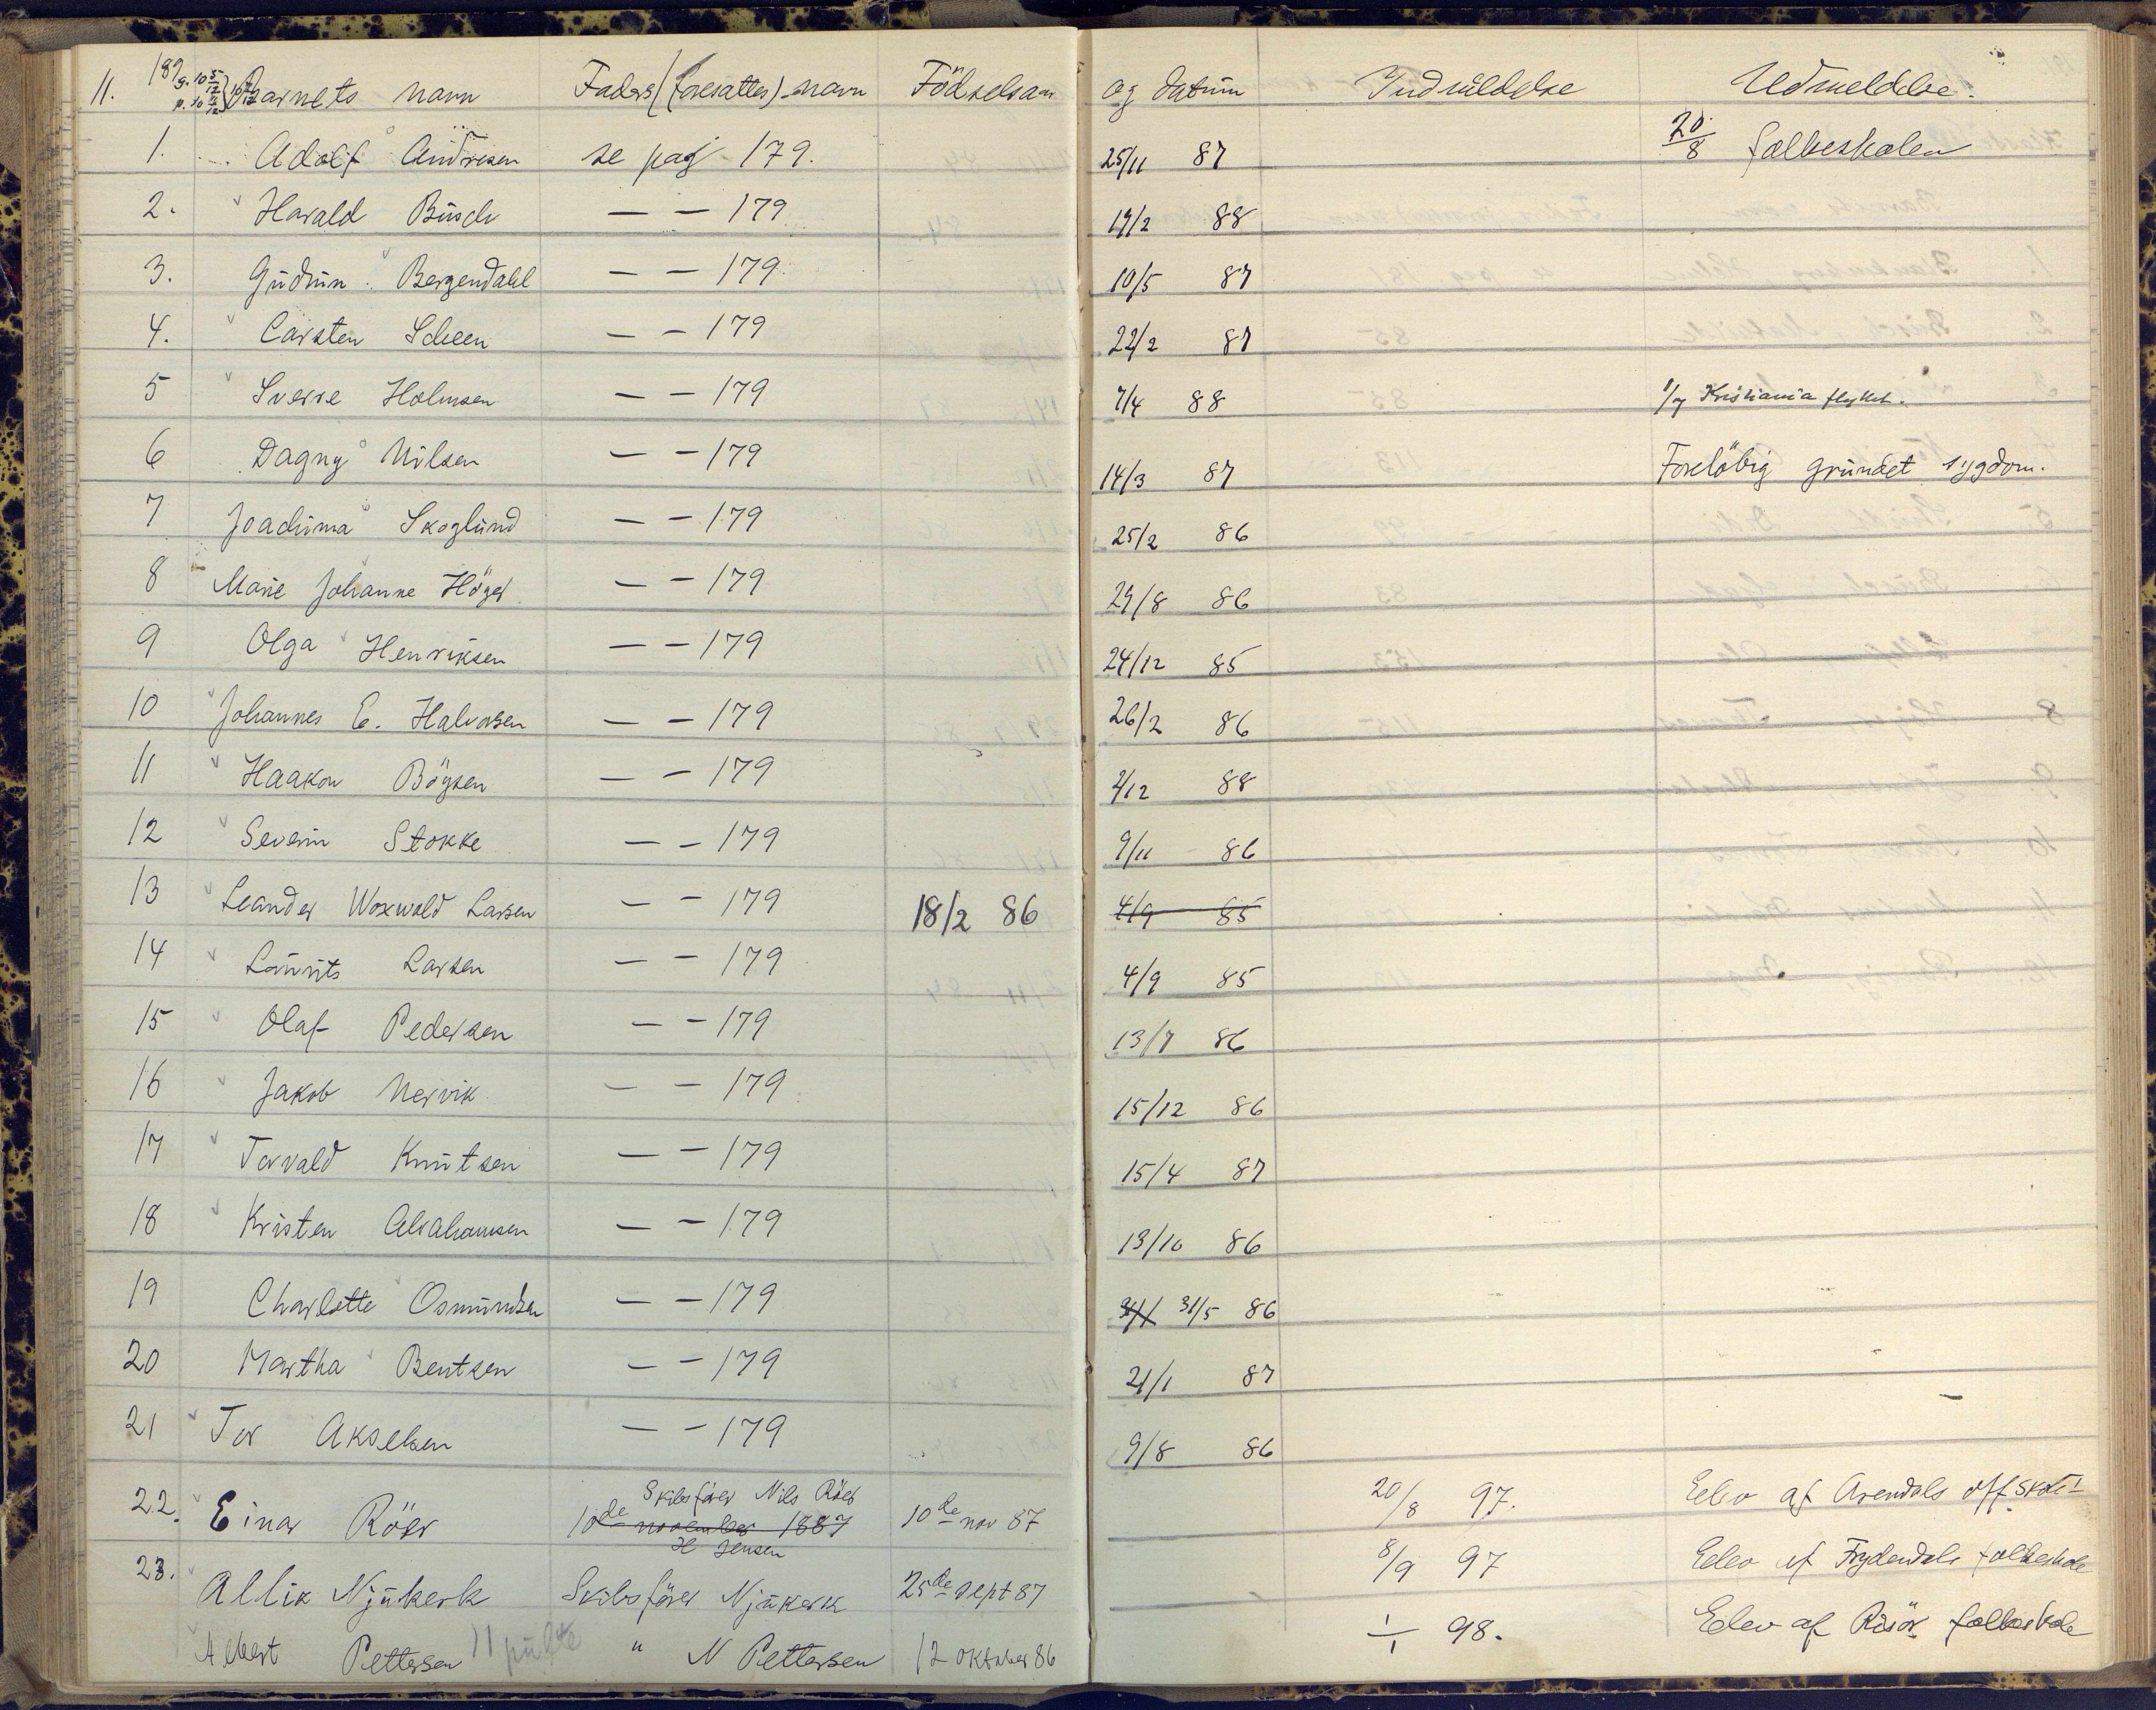 11. 189 Barnets navn Faders (foresattes) navn Födselsaar og datum Indmeldelse Udmeldelse.
1. Adolf Andresen se pag 179. 25/11 87 20/8 folkeskolen
2. Harald Büsch — — 179 19/2 88
3. Gudrun Bergendahl — — 179 10/5 87
4. Carsten Scheen — — 179 22/2 87
5 Sverre Holmsen — — 179 7/4 88 Kristiania flyttet.
6 Dagny Nilsen — — 179 14/3 87 Foreløbig grundet sygdom.
7 Joachima Skoglund — — 179 25/2 86
8 Marie Johanne Höyer — — 179 29/8 86
9 Olga Henriksen — — 179 24/12 85
10 Johannes E. Halvorsen — — 179 26/2 86
11 Haakon Böysen — — 179 2/12 88
12 Severin Stokke — — 179 9/11 86
13 Leander Woxwold Larsen — — 179 18/2 86 4/9 85
14 Laurits Larsen — — 179 4/9 85
15 Olaf Pedersen — — 179 13/7 86
16 Jakob Nervik — — 179 15/12 86
17 Torvald Knutsen — — 179 15/4 87
18 Kristen Abrahamsen — — 179 13/10 86
19 Charlotte Osmundsen — — 179 31/5 86
20 Martha Bentsen — — 179 21/1 87
21 Tor Akselsen — — 179 9/8 86
22. Einar Röer Skibsförer Nils Röer 10de november 1887 10de nov 87 20/8 97. Elev af Arendals off. skole
H Jensen
23. Allix Njükerk Skibsförer Njükerk 25de sept 87 8/9 97 Elev af Frydendals folkeskole
Albert Pettersen 11 pulte " N Pettersen 12 oktober 86 1/1 98. Elev af Risör folkeskole